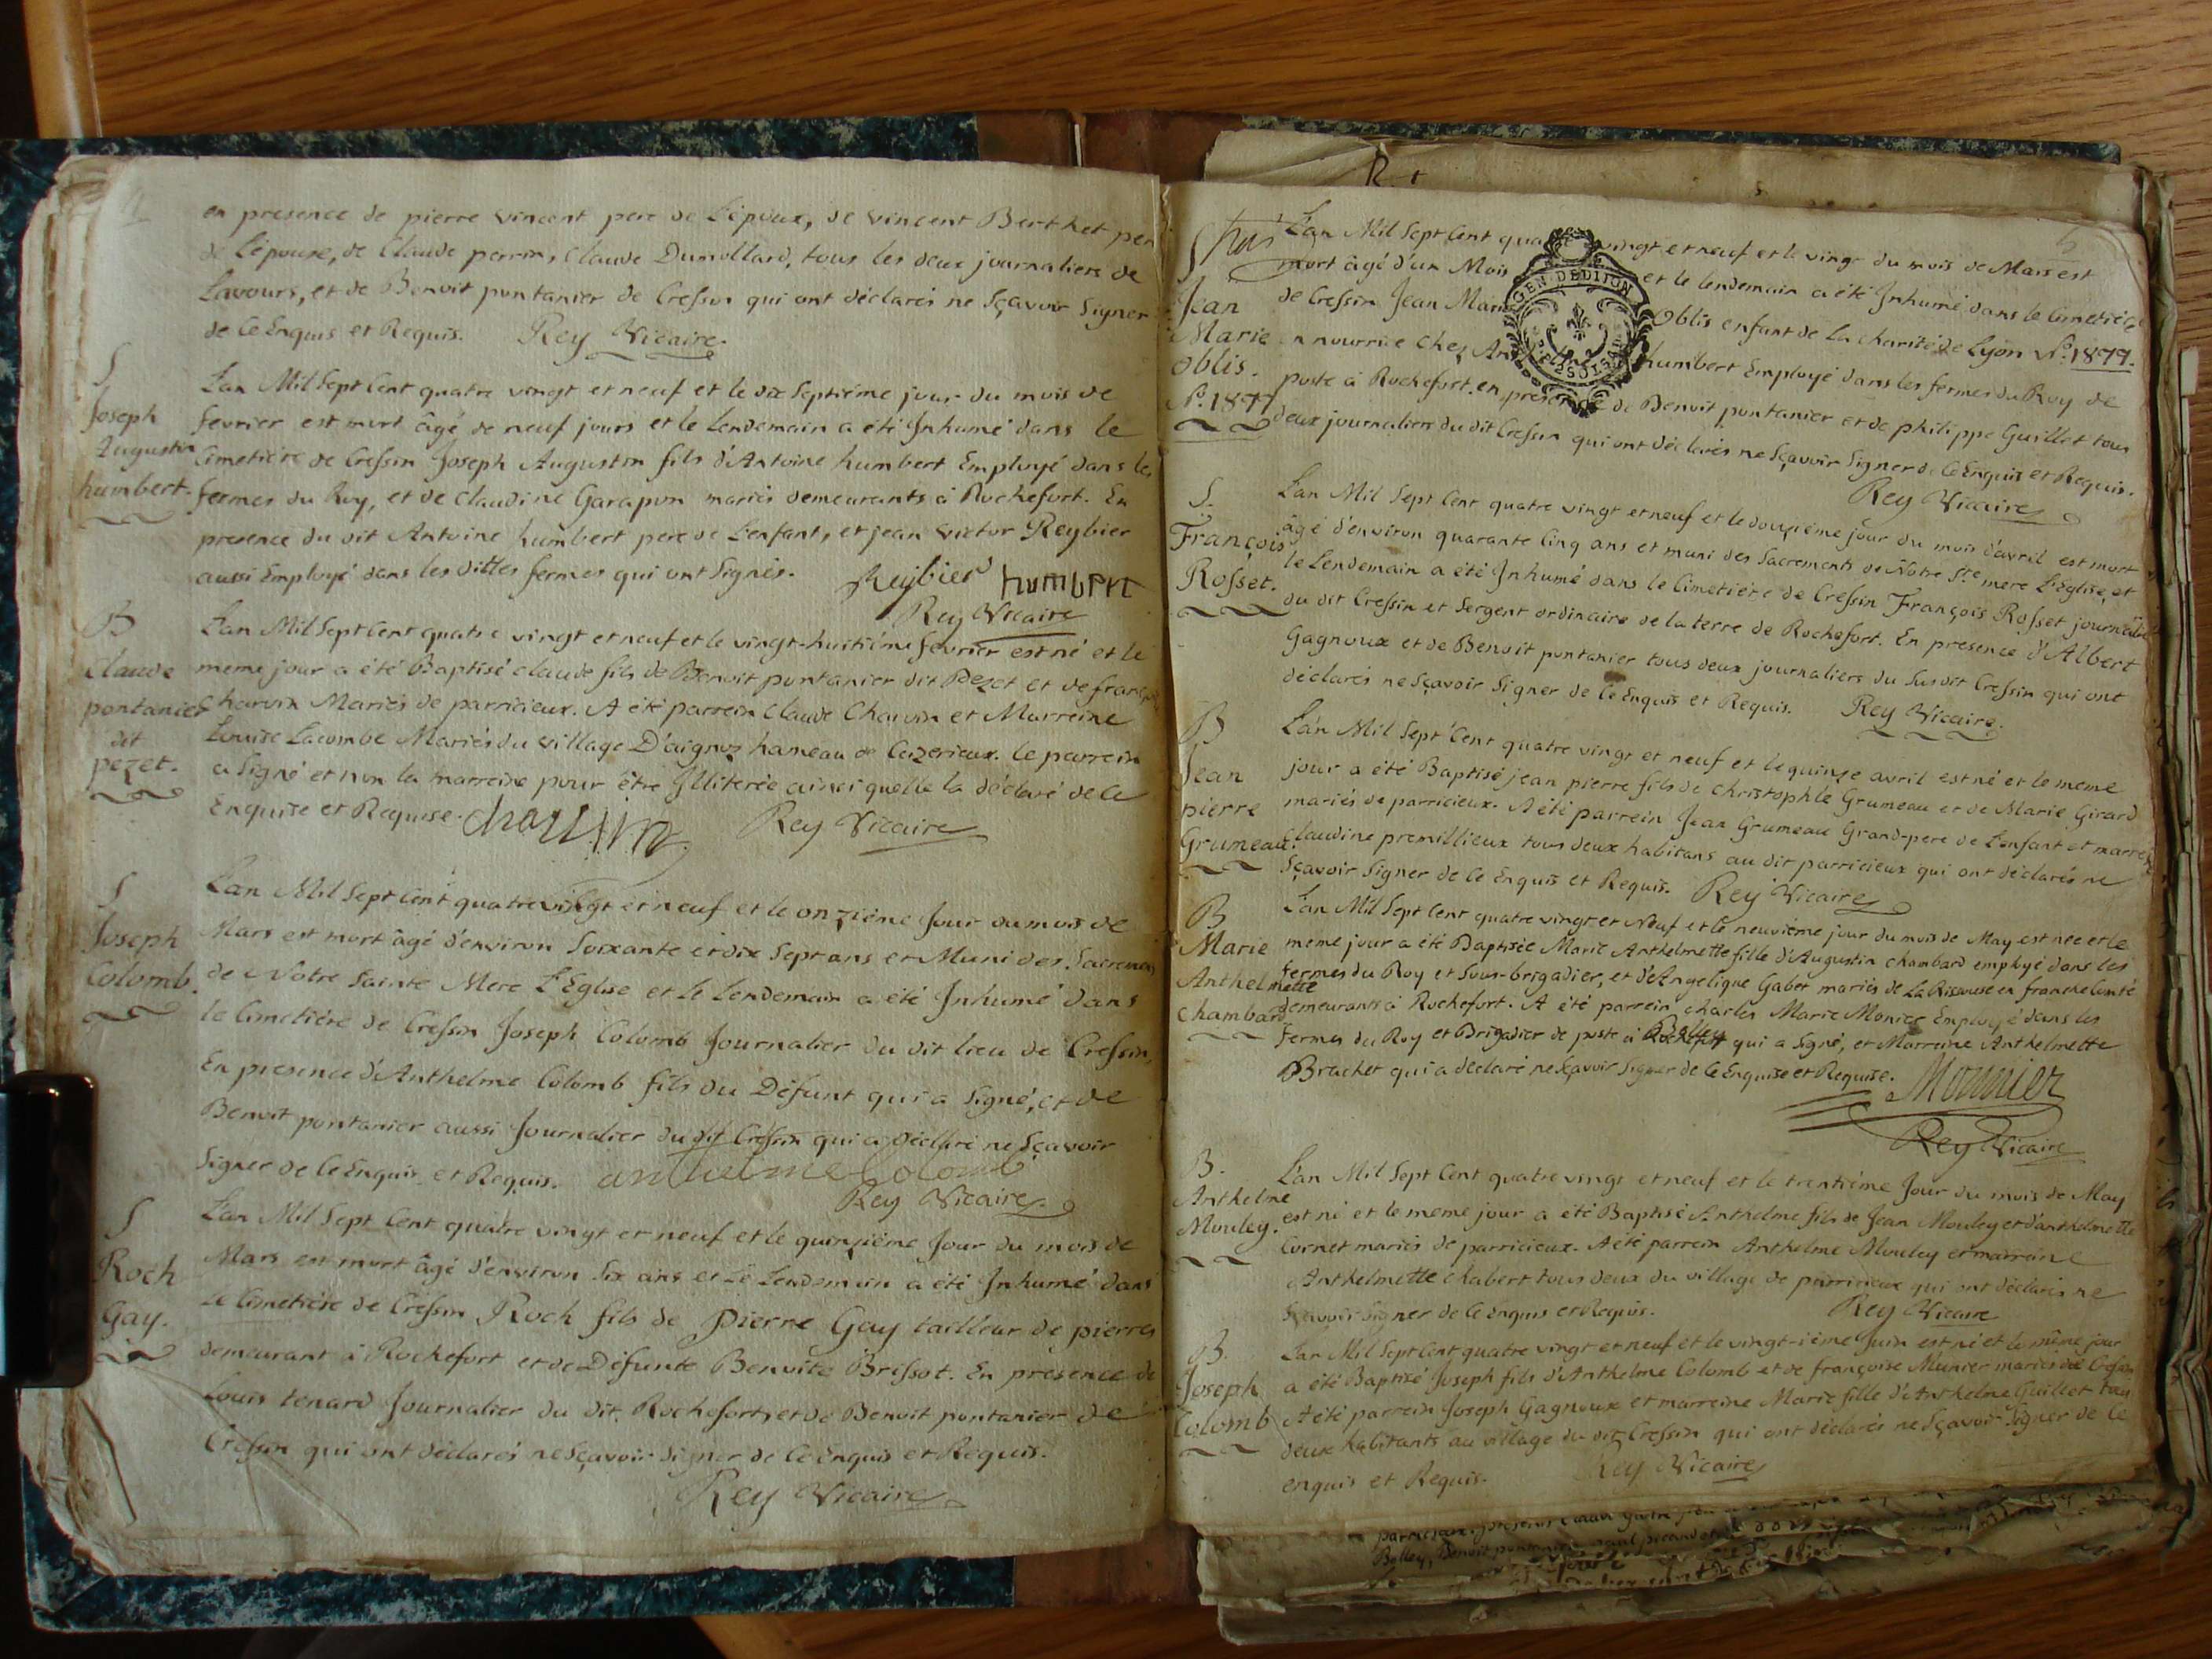 4
en presence de pierre vincent pere de L'époux, de vincent Berthet pere
de L'épouse, de Claude perrin, Claude Dumollard, tous les deux journaliers de
Lavours, et de Benoit pontanier de Cressin qui ont déclarés ne Sçavoir Signer
de Ce Enquis et Requis. Rey Vicaire.
S
Joseph
Augustin
humbert.
L'an Mil Sept Cent quatre vingt et neuf et le dix Septiéme jour du mois de
fevrier est mort âgé de neuf jours et le Lendemain a été Inhumé dans le
Cimetiére de Cressin Joseph Augustin fils d'Antoine humbert Employé dans les
fermes du Roy, et de Claudine Garapon mariés demeurants à Rochefort. En
presence du dit Antoine humbert pere de L'enfant, et jean victor Reybier
aussi Employé dans les dittes fermes qui ont Signés. Reybier humbert
Rey Vicaire
B
Claude
pontanier
dit
pezet.
L'an Mil Sept Cent quatre vingt et neuf et le vingt-huitiéme fevrier est né et le
meme jour a été Baptisé claude fils de Benoit pontanier dit Pezet et de françoise
Charvin Mariés de parricieux. A été parrein Claude Charvin et Marreine
Louise Lacombe Mariés du village D'aignoz hameau de Ceizerieux. le parrein
a Signé et non la marreine pour être Illiterée ainsi quelle la déclaré de Ce
Enquise et Requise. charvin Rey Vicaire
S
Joseph
Colomb.
L'an Mil Sept Cent quatre vingt et neuf et le onziéme Jour du mois de
Mars est mort âgé d'environ Soixante et dix Sept ans et Muni des Sacremens
de Notre Sainte Mere L'Eglise et Le Lendemain a été Inhumé dans
le Cimetiére de Cressin Joseph Colomb Journalier du dit lieu de Cressin,
En presence d'Anthelme Colomb fils du Défunt qui a Signé, et de
Benoit pontanier aussi Journalier du dit Cressin qui a déclaré ne Sçavoir
Signer de Ce Enquis et Requis. anthelme Colomb
Rey Vicaire.
S
Roch
Gay.
L'an Mil Sept Cent quatre vingt et neuf et le quinziéme Jour du mois de
Mars est mort âgé d'environ Six ans et Le Lendemain a été Inhumé dans
Le Cimetiére de Cressin Roch fils de Pierre Gay tailleur de pierres
demeurant à Rochefort et de Défunte Benoite Bressot. En presence de
Louis tenard Journalier du dit Rochefort, et de Benoit pontanier de
Cressin qui ont déclarés ne Sçavoir Signer de Ce Enquis et Requis.
Rey Vicaire
5
GEN D'EDITON
Jean
Marie
oblis.
N.° 1877
L'an Mil Sept Cent quatre vingt et neuf et le vingt du mois de Mars est
mort âgé d'un Mois et le lendemain a été Inhumé dans le Cimetiére
de Cressin Jean Marie Oblis enfant de La charité de Lyon N.° 1877.
en nourrice Chez humbert Employé dans les fermes du Roy de
poste à Rochefort. en presence de Benoit pontanier et de philippe Guillet tous
deux journaliers du dit Cressin qui ont déclarés ne Sçavoir Signer de Ce Enquis et Requis.
Rey Vicaire
S.
François
Rosset.
L'an Mil Sept Cent quatre vingt et neuf et le douziéme jour du mois d'avril est mort
âgé d'environ quarante Cinq ans et muni des Sacrements de Notre Ste mere L'Eglise, et
le Lendemain a été Inhumé dans le Cimetiére de Cressin François Rosset journalier
du dit Cressin et Sergent ordinaire de la terre de Rochefort. En presence d'Albert
Gagnoux et de Benoit pontanier tous deux journaliers du Susdit Cressin qui ont
déclarés ne Sçavoir Signer de Ce Enquis et Requis. Rey Vicaire.
B
Jean
pierre
Grumeau.
L'an Mil Sept Cent quatre vingt et neuf et le quinze avril est né et le meme
jour a été Baptisé jean pierre fils de Christophle Grumeau et de Marie Girard
mariés de parricieux. A été parrein Jean Grumeau Grand-pere de L'enfant et marreine
Claudine premillieux tous deux habitans au dit parricieux qui ont déclarés ne
Sçavoir Signer de Ce Enquis et Requis. Rey Vicaire
B
Marie
Anthelmette
Chambard
L'an Mil Sept Cent quatre vingt et Neuf et le neuviéme jour du mois de May est née et le
meme jour a été Baptisée Marie Anthelmette fille d'Augustin chambard employé dans les
fermes du Roy et Sous-brigadier, et d'Angelique Gabet mariés de La Rixouse en franche Comté
demeurants à Rochefort. A été parrein Charles Marie Monier Employé dans les
Fermes du Roy et Brigadier de poste à Belley qui a Signé, et Marreine Anthelmette
Brachet qui a déclaré ne Sçavoir Signer de Ce Enquise et Requise. Monnier
Rey Vicaire
B.
Anthelme
Mouley.
L'an Mil Sept Cent quatre vingt et neuf et le trentiéme Jour du mois de May
est né et le meme jour a été Baptisé Anthelme fils de Jean Mouley et d'anthelmette
Cornet mariés de parricieux. A été parrein Anthelme Mouley et marreine
Anthelmette chabert tous deux du village de parricieux qui ont déclarés ne
Sçavoir Signer de Ce Enquis et Requis. Rey Vicaire
B.
Joseph
Colomb
L'an Mil Sept Cent quatre vingt et neuf et le vingt-iéme Juin est né et le même jour
a été Baptisé Joseph fils d'Anthelme Colomb et de françoise Munier mariés de Cressin
A été parrein Joseph Gagnoux et marreine Marie fille d'Anthelme Guillet tous
deux habitants au village du dit Cressin qui ont déclarés ne Sçavoir Signer de Ce
enquis et Requis. Rey Vicaire